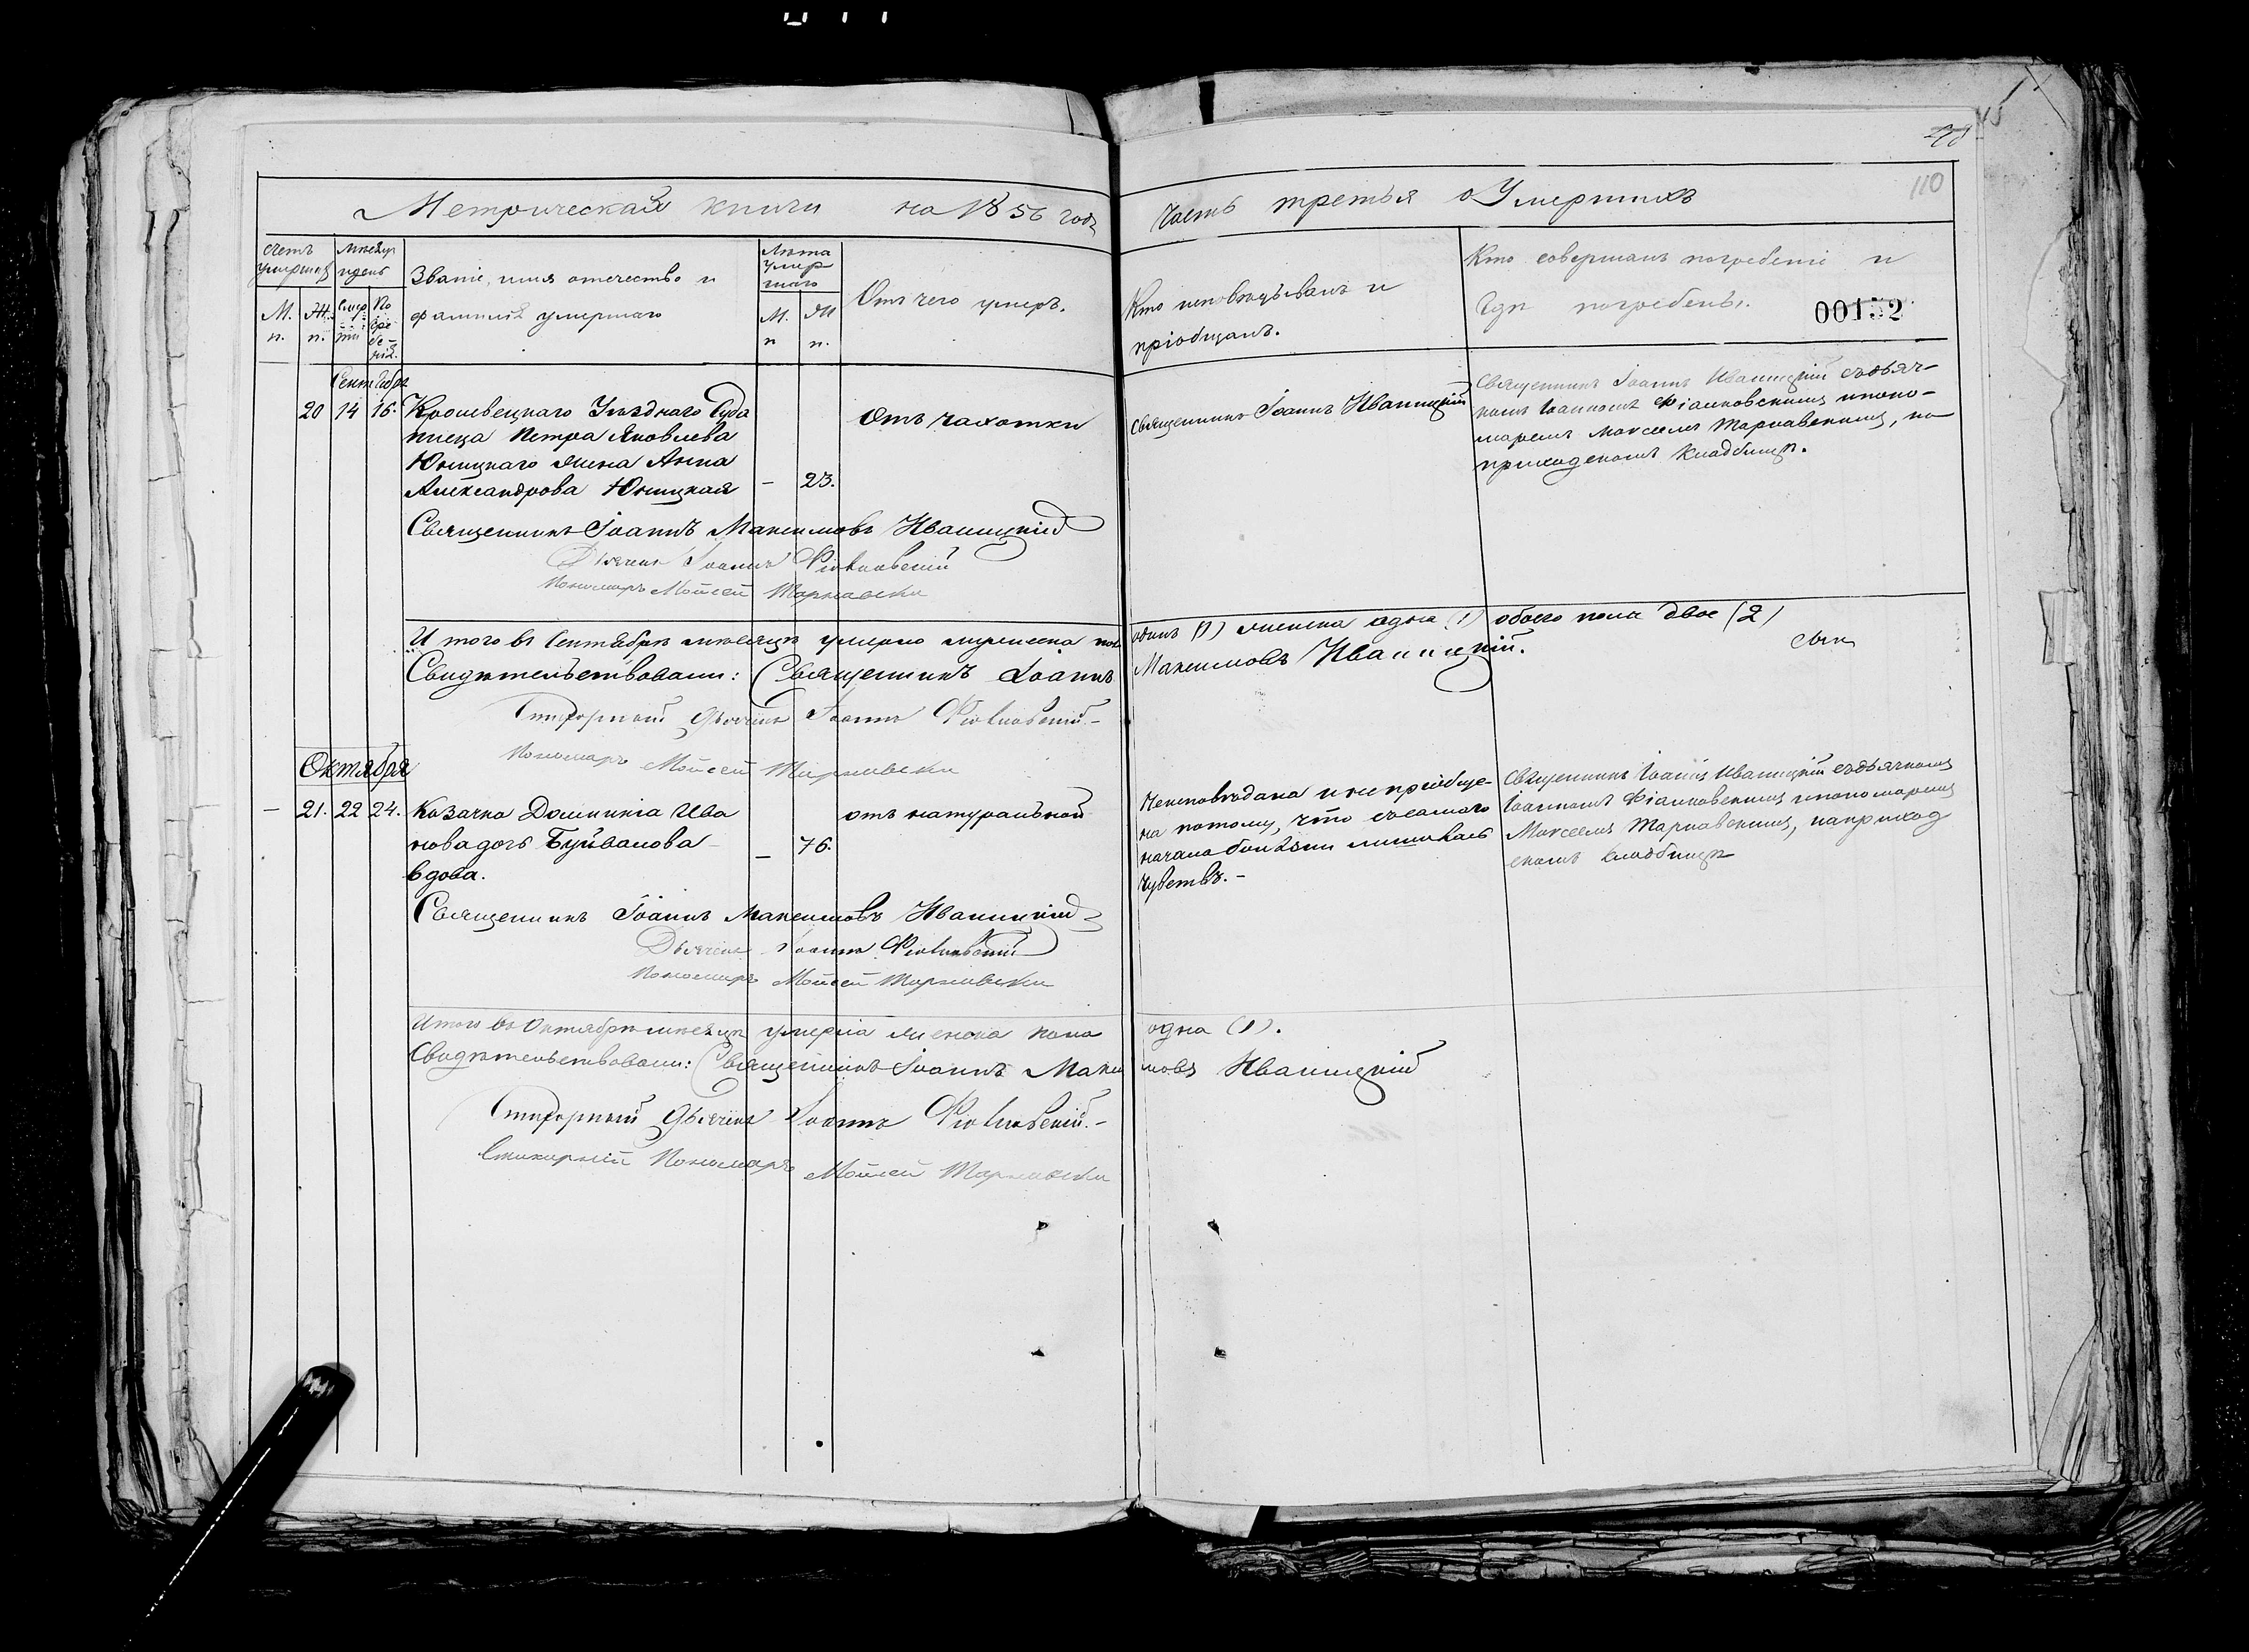 Метрической книги на 1856 годъ
Часть третья о Умершихъ
110
Счетъ умершихъ
Мѣсяцъ и день
Званіе, имя отечество и
фамилія умершаго
Лѣта умершаго
Отъ чего умеръ.
Кто исповѣдывалъ и
пріобщалъ.
Кто совершалъ погребеніе и
Гдѣ погребенъ.
00152
М. п.
Ж. п.
Смерти
Погребенія
М. п
Ж п.
Сентября
20 14 16. Кролевецкаго Уѣзднаго Суда
писца Петра Яковлева
Юницкаго жена Анна
Александрова Юницкая — 23.
Отъ чахотки
Священникъ Іоаннъ Иваницкій
Священникъ Іоаннъ Иваницкій съ дьяч-
комъ Іоанномъ Фіалковскимъ и поно-
маремъ Тарнавскимъ, на
приходскомъ кладбищѣ.
Священникъ Іоаннъ Максимовъ Иваницкій
Дьячекъ Іоаннъ Фіалковскій
Пономарь Мойсей Тарнавскій
Итого въ Сентябрѣ мѣсяцѣ умерло мужеска пола одинъ (1) женска одна (1) обоего пола двое (2)
Свидѣтельствовали: Священникъ Іоаннъ Максимовъ Иваницкій.
Стихарный дьячекъ Іоаннъ Фіалковскій.-
Пономарь Мойсей Тарнавскій
Октября
— 21. 22 24. Козачка Домникія Ива
нова дочь
вдова. — 76.
отъ натуральной
Неисповѣдана и непріобще-
на потому, что съ самаго
начала болѣзни лишилась
чувствъ.-
Священникъ Іоаннъ Иваницкій съ дьячкомъ
Іоанномъ Фіалковскимъ и пономаремъ
Тарнавскимъ, на приход
скомъ кладбищѣ
Священникъ Іоаннъ Максимовъ Иваницкій
Дьячекъ Іоаннъ Фіалковскій
Пономарь Мойсей Тарнавскій
Итого въ Октябрѣ мѣсяцѣ умерла женска пола одна (1).
Свидѣтельствовали: Священникъ Іоаннъ Максимовъ Иваницкій
Стихарный дьячекъ Іоаннъ Фіалковскій.-
Стихарній Пономарь Мойсей Тарнавскій